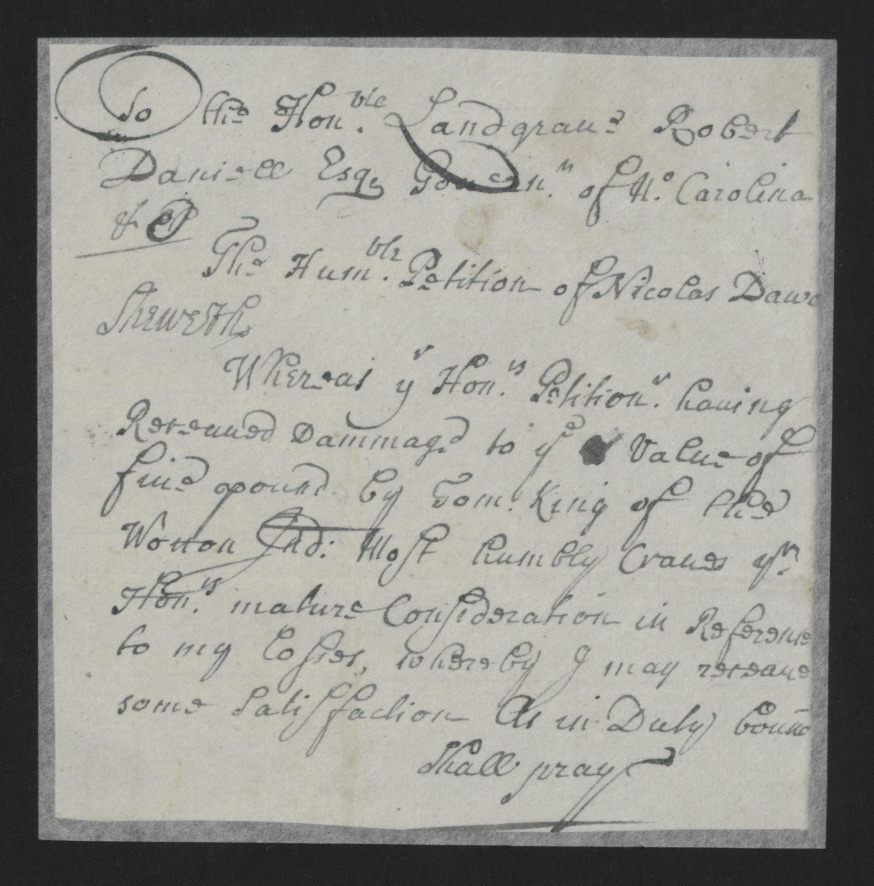 To the Honble. Landgraue Robert
Daniell Esqr Gouern.r of No. Carolina
& C
The Humble. Petition of Nicolas Daw
Sheweth
Whereas yr Hon.rs Petitionr. hauing
Receaued Dammage to ye Value of
fiue pound by Tom: King of the
Wotton Ind: Most humbly Craues yr
Hon.rs mature Consideration in Reference
to my losses, whereby I may receaue
some Satisfaction As in Duty bound
Shall pray